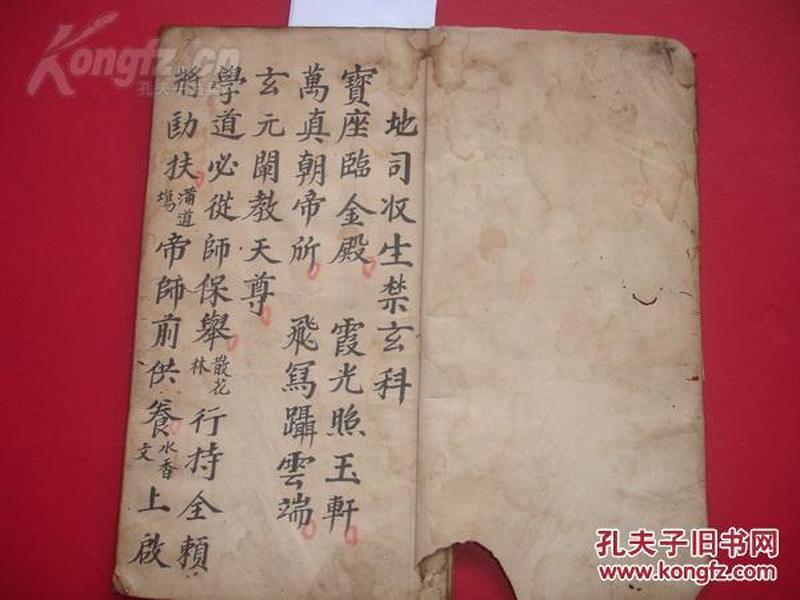 地司収生禁玄科
寶座臨金殿 霞光照玉軒
萬真朝帝所 飛舄躡雲端
玄元闡教天尊
學道必從師保舉 散花林 行持全賴
將勛扶 滿道塲 帝師前供養 水香文 上啟
Kongfz.cn
孔夫子旧书网
www.kongfz.com